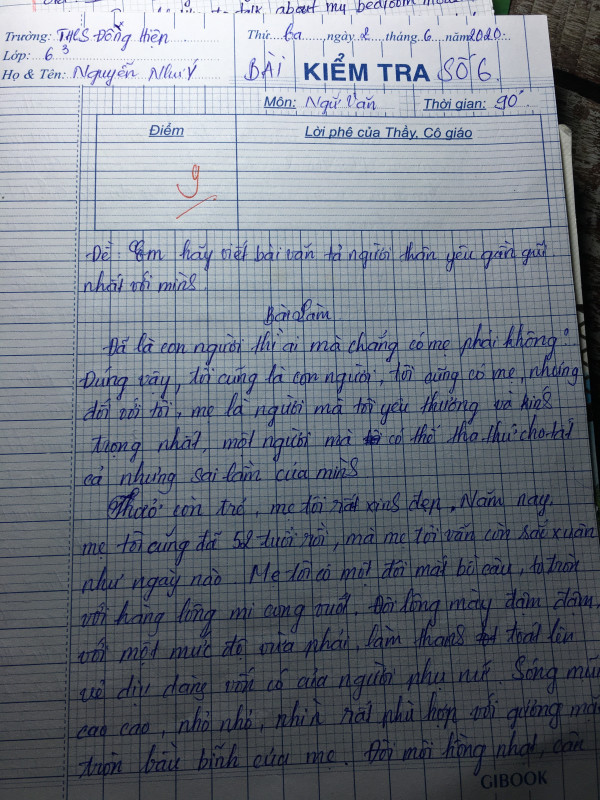 about my bedroom
Trường: THCS Đồng Hiện
Thứ: ba ngày 2 tháng 6 năm 2020
Lớp: 6³
Họ & Tên: Nguyễn Như Ý
BÀI KIỂM TRA SỐ 6
Môn: Ngữ Văn Thời gian: 90'
Điểm Lời phê của Thầy, Cô giáo
9
Đề: Em hãy viết bài văn tả người thân yêu gần gũi
nhất với mình.
Bài làm
Đã là con người thì ai mà chẳng có mẹ phải không?
Đúng vậy, tôi cũng là con người, tôi cũng có mẹ, nhưng
đối với tôi, mẹ là người mà tôi yêu thương và kính
trọng nhất, một người mà có thể tha thứ cho tất
cả những sai lầm của mình
Thuở còn trẻ, mẹ tôi rất xinh đẹp. Năm nay,
mẹ tôi cũng đã 52 tuổi rồi, mà mẹ tôi vẫn còn sắc xuân
như ngày nào. Mẹ tôi có một đôi mắt bồ câu, to tròn
với hàng lông mi cong vuốt. Đôi lông mày đậm đậm,
với một mức độ vừa phải, làm thanh toát lên
vẻ dịu dàng vốn có của người phụ nữ. Sóng mũi
cao cao, nhỏ nhỏ, nhìn rất phù hợp với gương mặ
tròn bầu bĩnh của mẹ. Đôi môi hồng nhạt, căn
GIBOOK